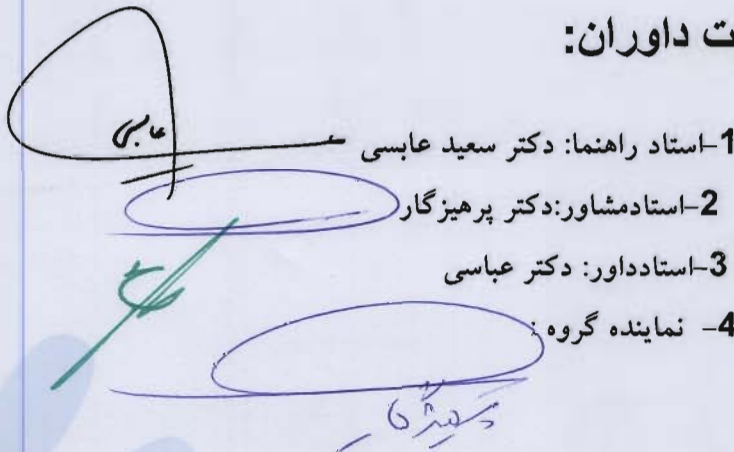 ت داوران:
1-استاد راهنما: دکتر سعید عابسی
عابسی
2-استادمشاور:دکتر پرهیزگار
3-استادداور: دکتر عباسی
4- نماینده گروه :
پرهیزگار